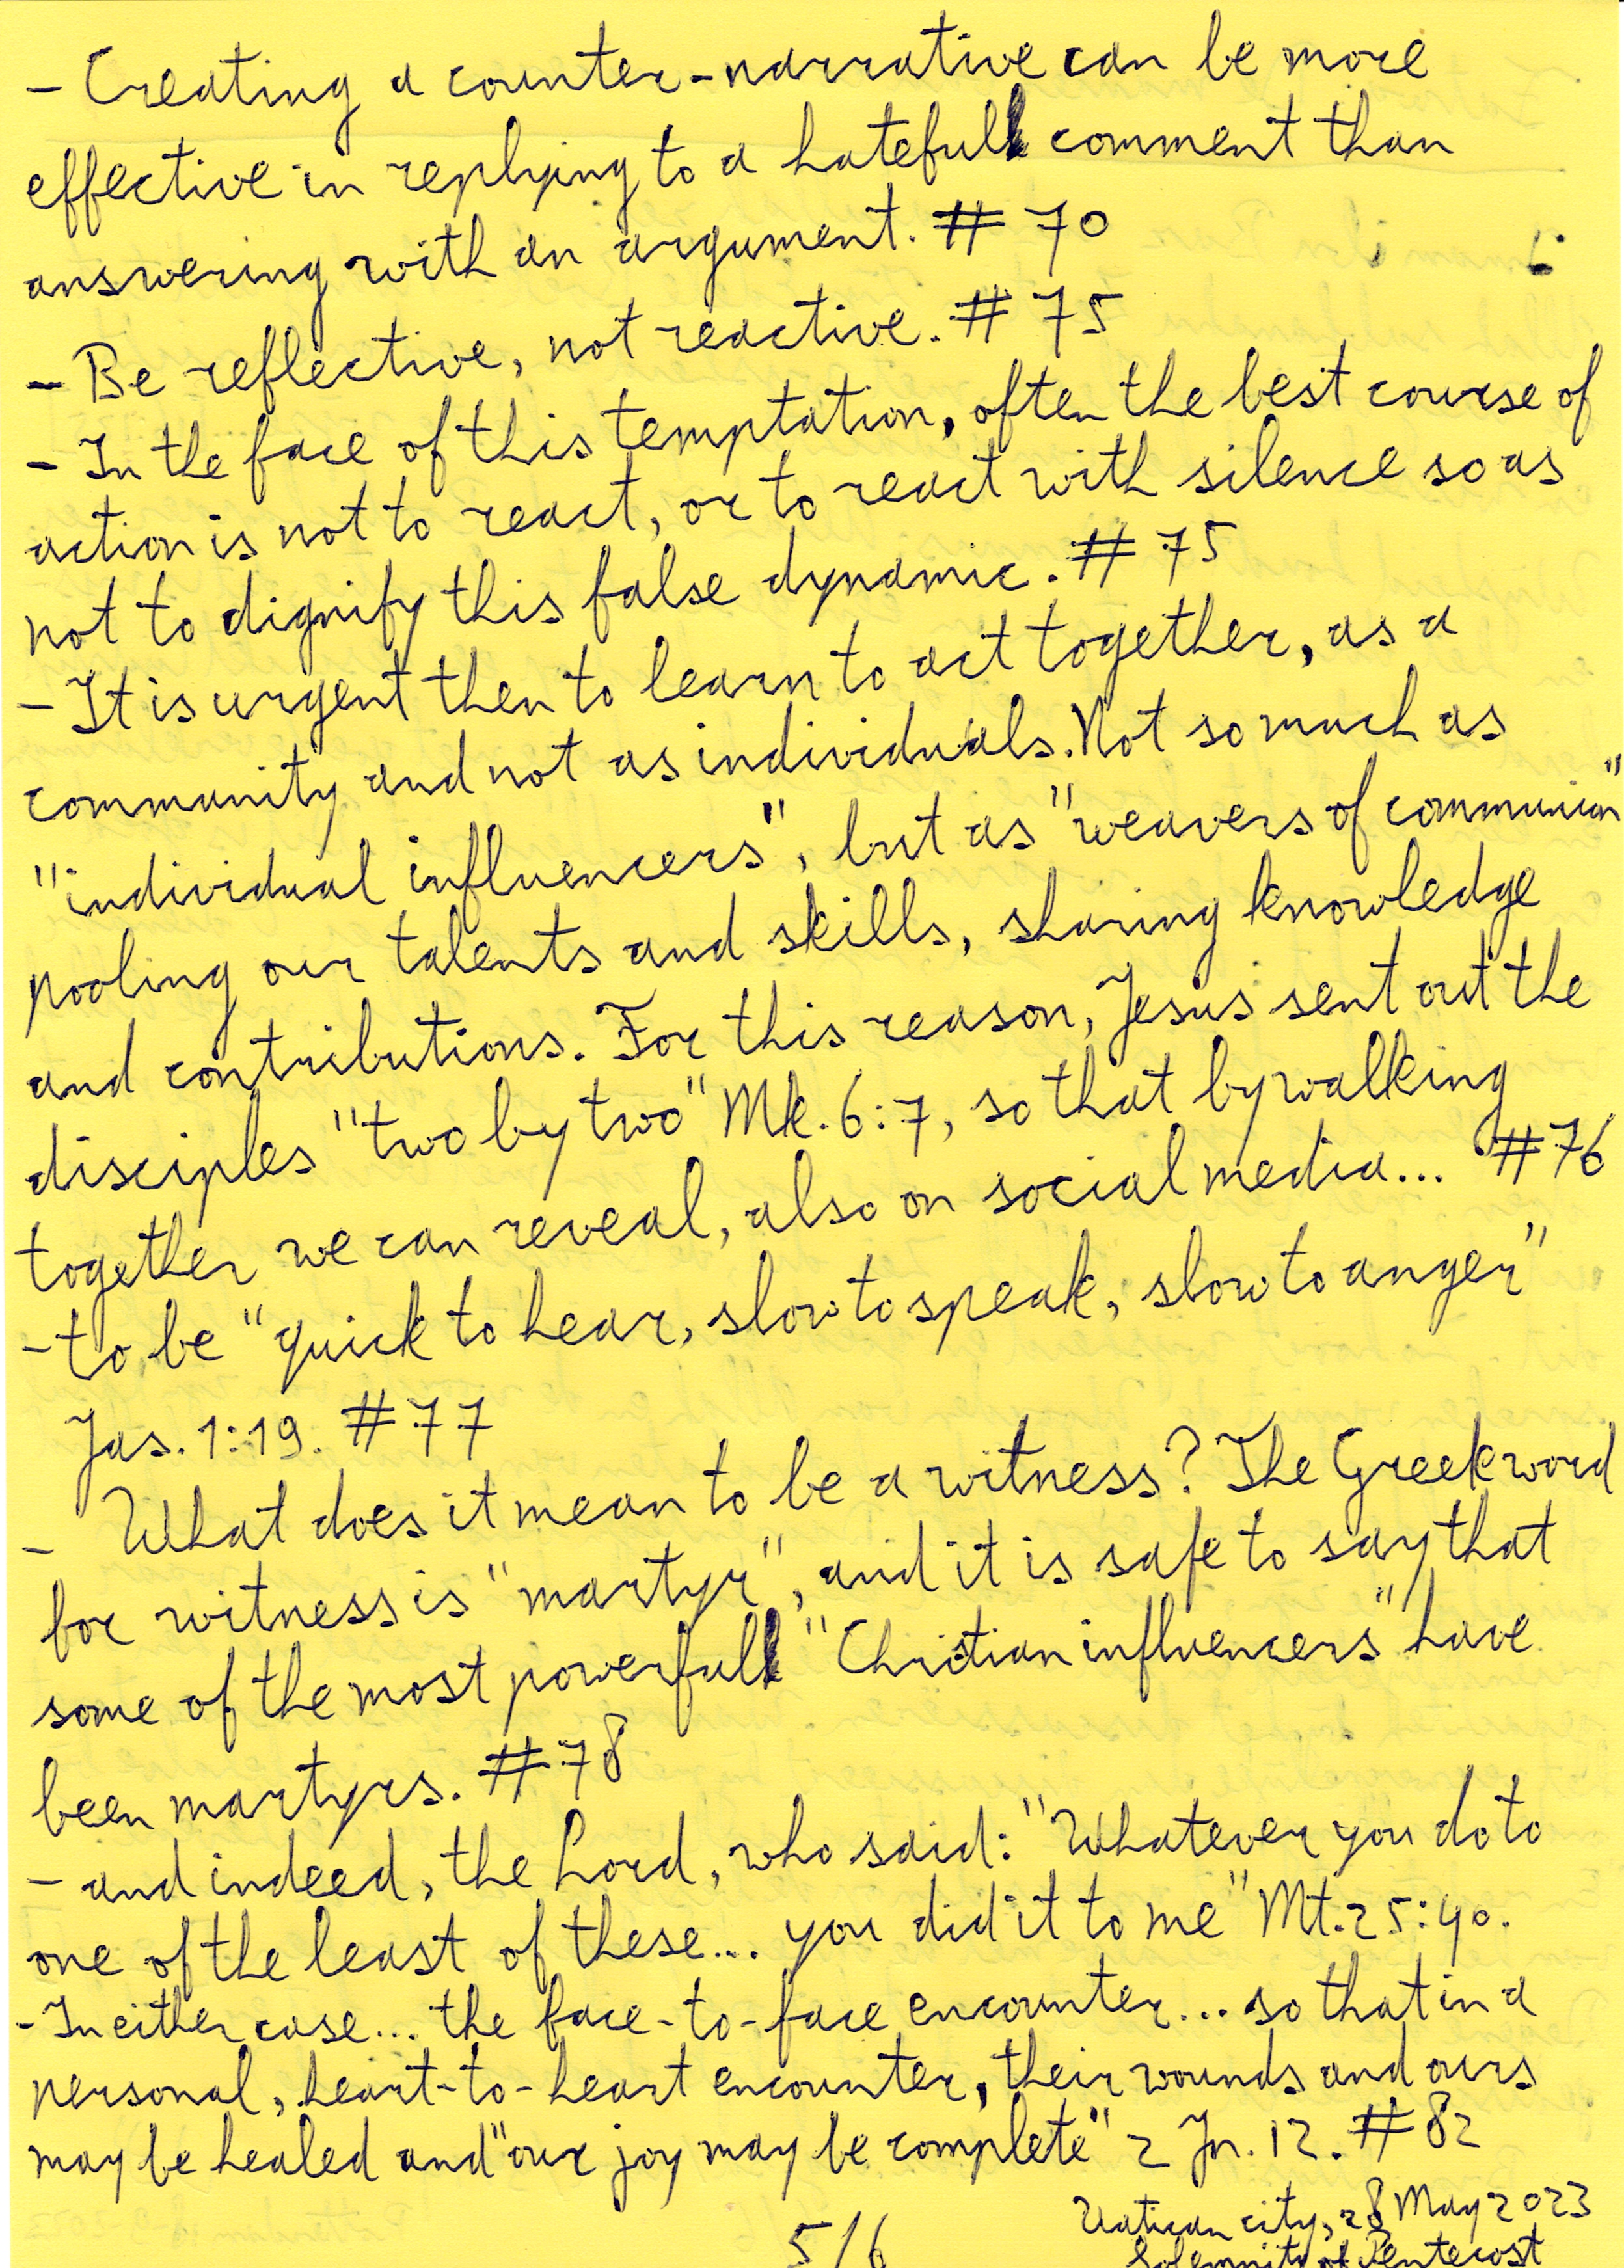 - Creating a counter-narrative can be more
effective in replying to a hateful comment than
answering with an argument. # 70
- Be reflective, not reactive. # 75
- In the face of this temptation, often the best course of
action is not to react, or to react with silence so as
not to dignify this false dynamic. # 75
- It is urgent then to learn to act together, as a
community and not as individuals. Not so much as
"individual influencers", but as "weavers of communion"
pooling our talents and skills, sharing knowledge
and contributions. For this reason, Jesus sent out the
disciples "two by two" Mk. 6:7, so that by walking
together we can reveal, also on social media... #76
- to be "quick to hear, slow to speak, slow to anger"
Jas. 1:19. #77
- What does it mean to be a witness? The Greek word
for witness is "martyr", and it is safe to say that
some of the most powerful "Christian influencers" have
been martyrs. #78
- and indeed, the Lord, who said: "Whatever you do to
one of the least of these... you did it to me" Mt. 25:40.
- In either case... the face-to-face encounter... so that in a
personal, heart-to-heart encounter, their wounds and ours
may be healed and "our joy may be complete" 2 Jn. 12. #82
Vatican city, 28 May 2023
5/6
Solemnity of Pentecost